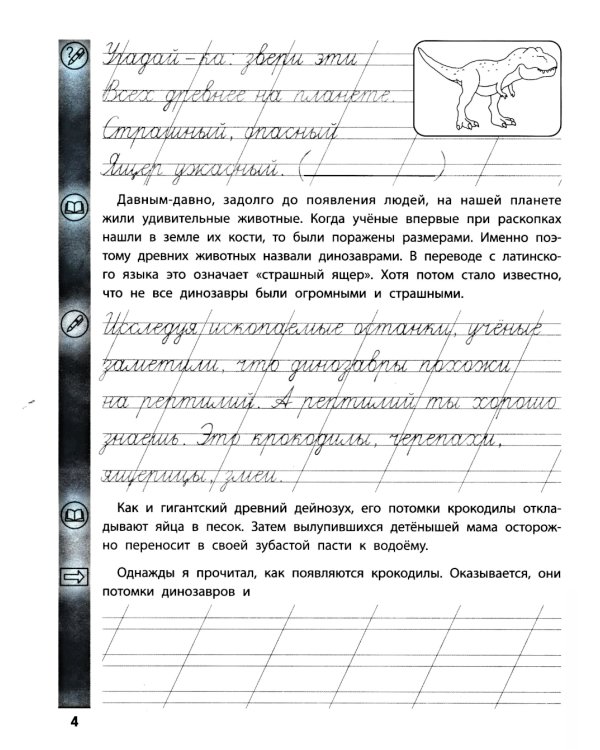 Угадай-ка: звери эти
Всех древнее на планете.
Страшный, опасный
Ящер ужасный. (____________)
Давным-давно, задолго до появления людей, на нашей планете
жили удивительные животные. Когда учёные впервые при раскопках
нашли в земле их кости, то были поражены размерами. Именно поэ-
тому древних животных назвали динозаврами. В переводе с латинско-
го языка это означает «страшный ящер». Хотя потом стало известно,
что не все динозавры были огромными и страшными.
Исследуя ископаемые останки, учёные
заметили, что динозавры похожи
на рептилий. А рептилий ты хорошо
знаешь. Это крокодилы, черепахи,
ящерицы, змеи.
Как и гигантский древний дейнозух, его потомки крокодилы откла-
дывают яйца в песок. Затем вылупившихся детёнышей мама осторож-
но переносит в своей зубастой пасти к водоёму.
Однажды я прочитал, как появляются крокодилы. Оказывается, они
потомки динозавров и
4